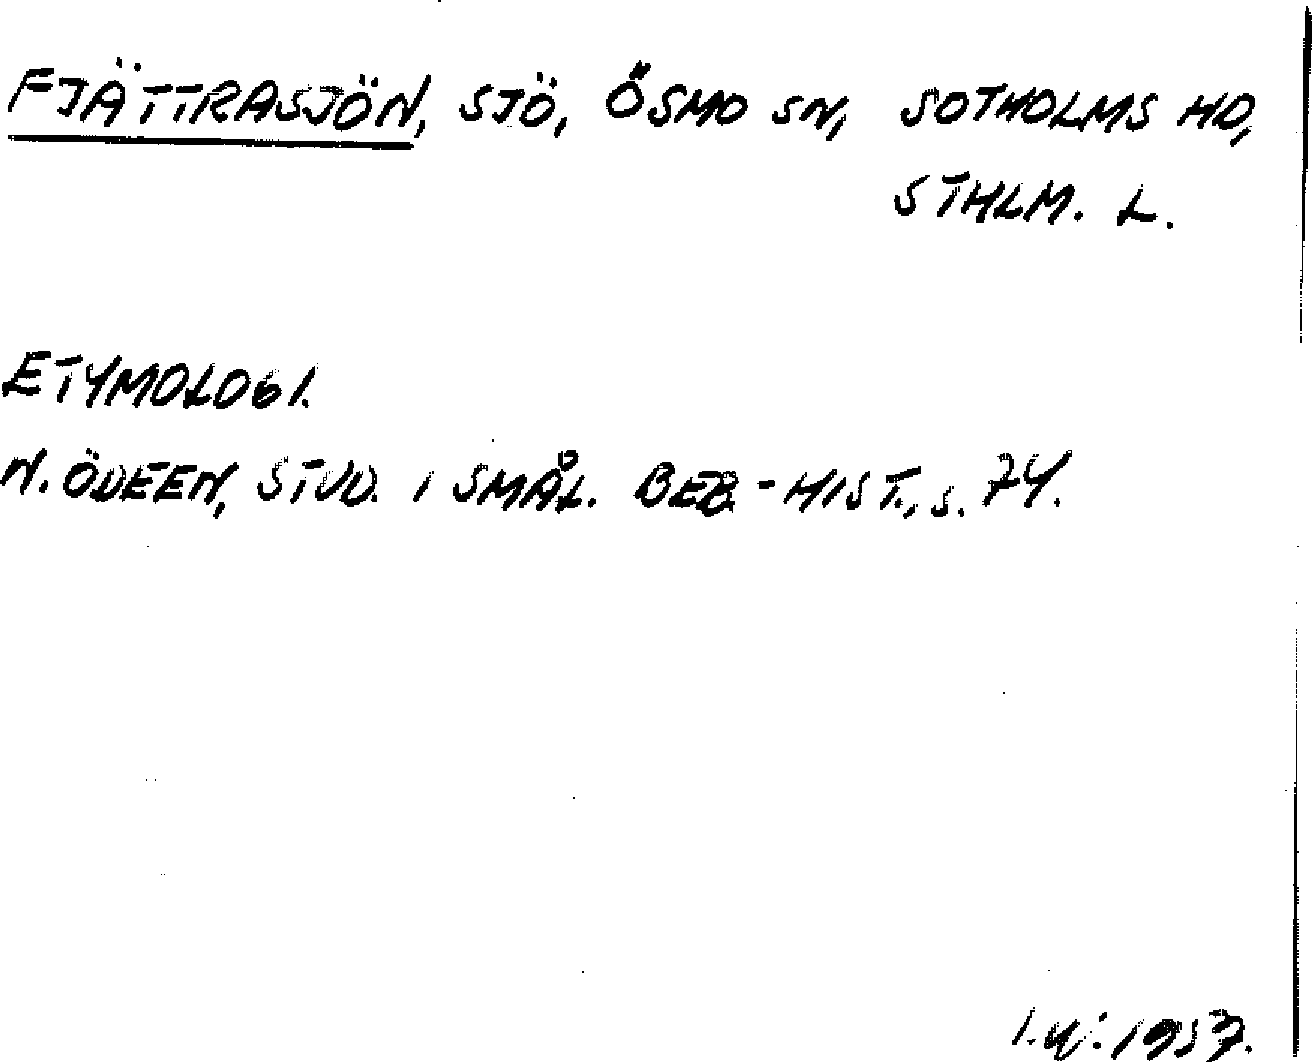 FJÄTTRASJÖN, SJÖ, ÖSMO SN, SOTHOLMS HD,
STHLM. L.
ETYMOLOGI.
N. ÖDEEN, STUD. I SMÅL. BEB.-HIST., S. 74.
1957.